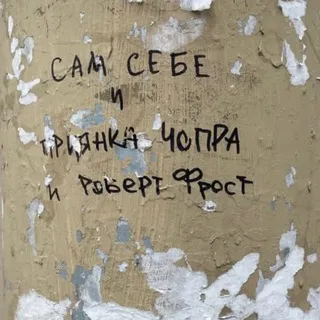 САМ СЕБЕ
И
ПРИЯНКА ЧОПРА
И РОБЕРТ ФРОСТ